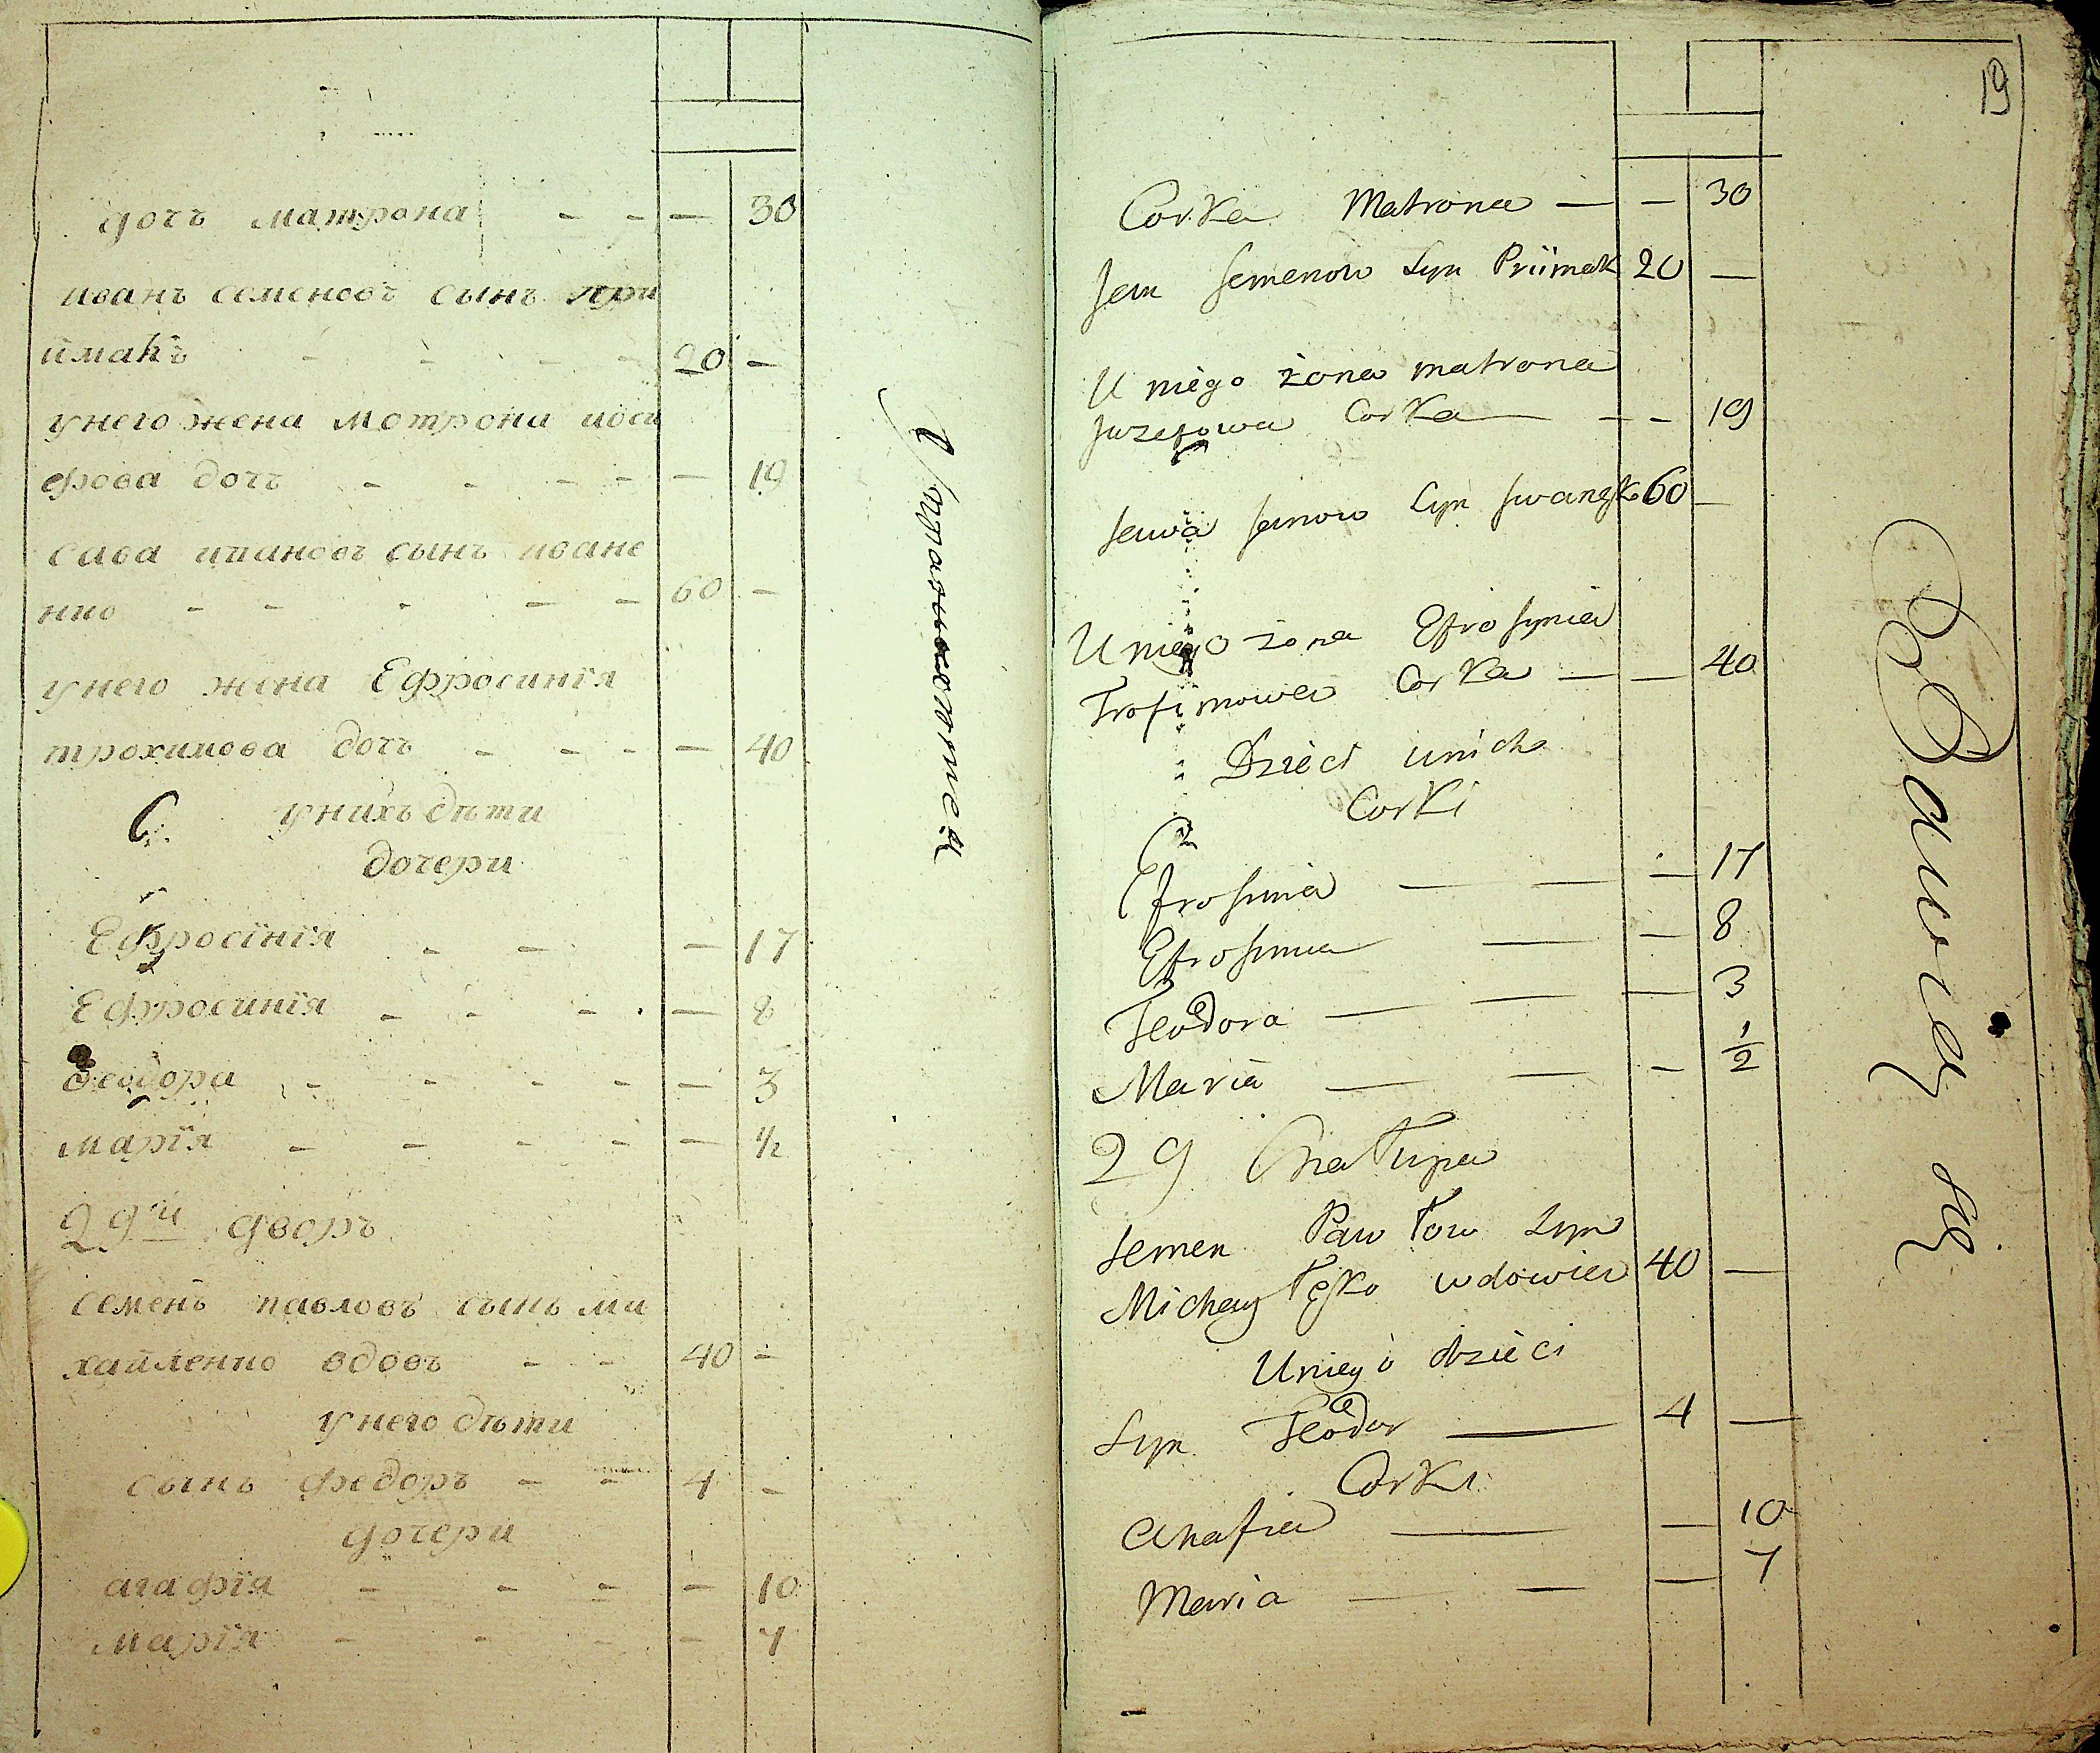 дочъ матрона - - — 30
иванъ семеновъ сынъ при
имакъ - - - - 20 -
у него жена мотрона иоси
ефова дочъ - - - - — 19
сава ивановъ сынъ иване
нко - - - - - 60 -
у него жена Ефросинїя
трохимова дочъ - - - — 40
у нихъ дѣти
дочери
Ефросїнїя - - — 17
Ефросинїя - - - — 8
феодора - - - - — 3
марїя - - - - — ½
29й дворъ
семенъ павловъ сынъ ми
хайленко вдовъ - - 40 -
у него дѣти
сынъ федоръ - - 4 -
дочери
агафїя - - - — 10
марїя - - - - 7
19
Corka Matrona — — 30
Jan Semenow Syn Priimak 20 —
U niego żona matrona
Juzefowa Corka — - - 19
Sawa Janow Syn Iwanęko 60 —
U niego zona Efrosynia
Trofimowa Corka — — 40
Dzieci unich
Corki
Efrosinia — — — 17
Efrosinia — — 8
Teodora — — — 3
Maria — — - ½
29 Chałupa
Semen Pawłow Syn
Michayłęko wdowiec 40 —
U niego dzieci
Syn Teodor — 4 —
Corki
Ahafia — — 10
Maria — — — 7